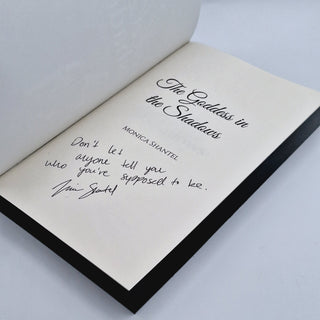 The Goddess in
the Shadows
MONICA SHANTEL
Don't let
anyone tell you
who you're supposed to be.
Shantel